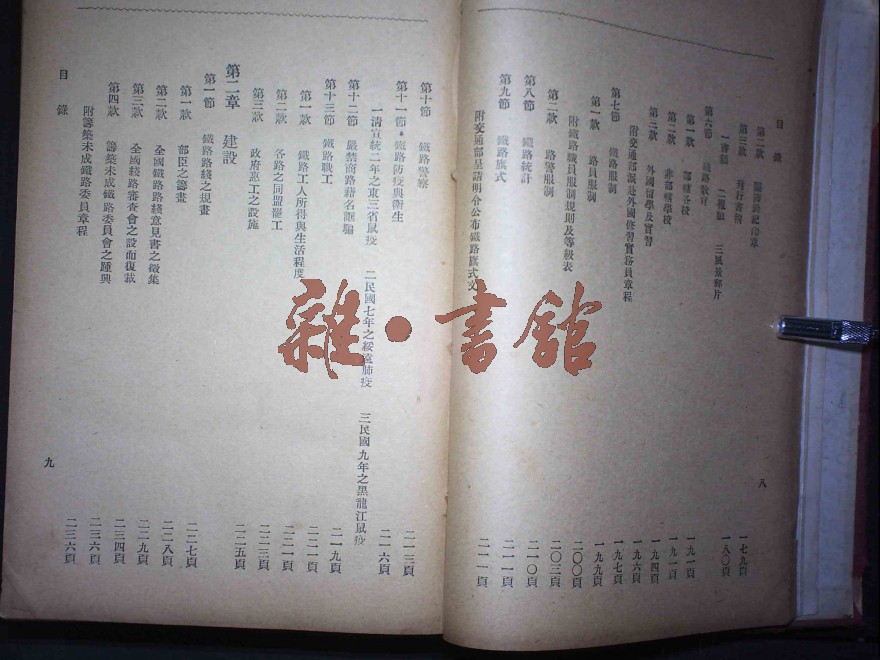 目錄
第二款
第三款 刊行書報
一書籍 二報章 三風景郵片
第六節 鐵路敎育
第一款 部轄各校
第二款 非部轄學校
第三款 外國留學及實習
附交通部派赴外國修習實務員章程
第七節 鐵路服制
第一款 路員服制
附鐵路職員服制規則及等級表
第二款 路警服制
第八節 鐵路統計
第九節 鐵路旗式
附交通部呈請明令公布鐵路旗式文
一七九頁
一八〇頁
一九一頁
一九一頁
一九四頁
一九六頁
一九七頁
一九九頁
二〇〇頁
二〇三頁
二一〇頁
二一一頁
二一一頁
八
第十節 鐵路警察
第十一節 鐵路防疫與衞生
一淸宣統二年之東三省鼠疫 二民國七年之綏遠肺疫 三民國九年之黑龍江鼠疫
第十二節 嚴禁商路藉名誆騙
第十三節 鐵路職工
第一款 鐵路工人所得與生活程度
第二款 各路之同盟罷工
第三款 政府惠工之設施
第二章 建設
第一節 鐵路路綫之規畫
第一款 部臣之籌畫
第二款 全國鐵路路綫意見書之徵集
第三款 全國綫路審查會之設而復裁
第四款 籌築未成鐵路委員會之踵興
附籌築未成鐵路委員章程
目錄
二一三頁
二一六頁
二一九頁
二二一頁
二二一頁
二二三頁
二二五頁
二二七頁
二二八頁
二二九頁
二三四頁
二三六頁
二三六頁
九
雜·書舘